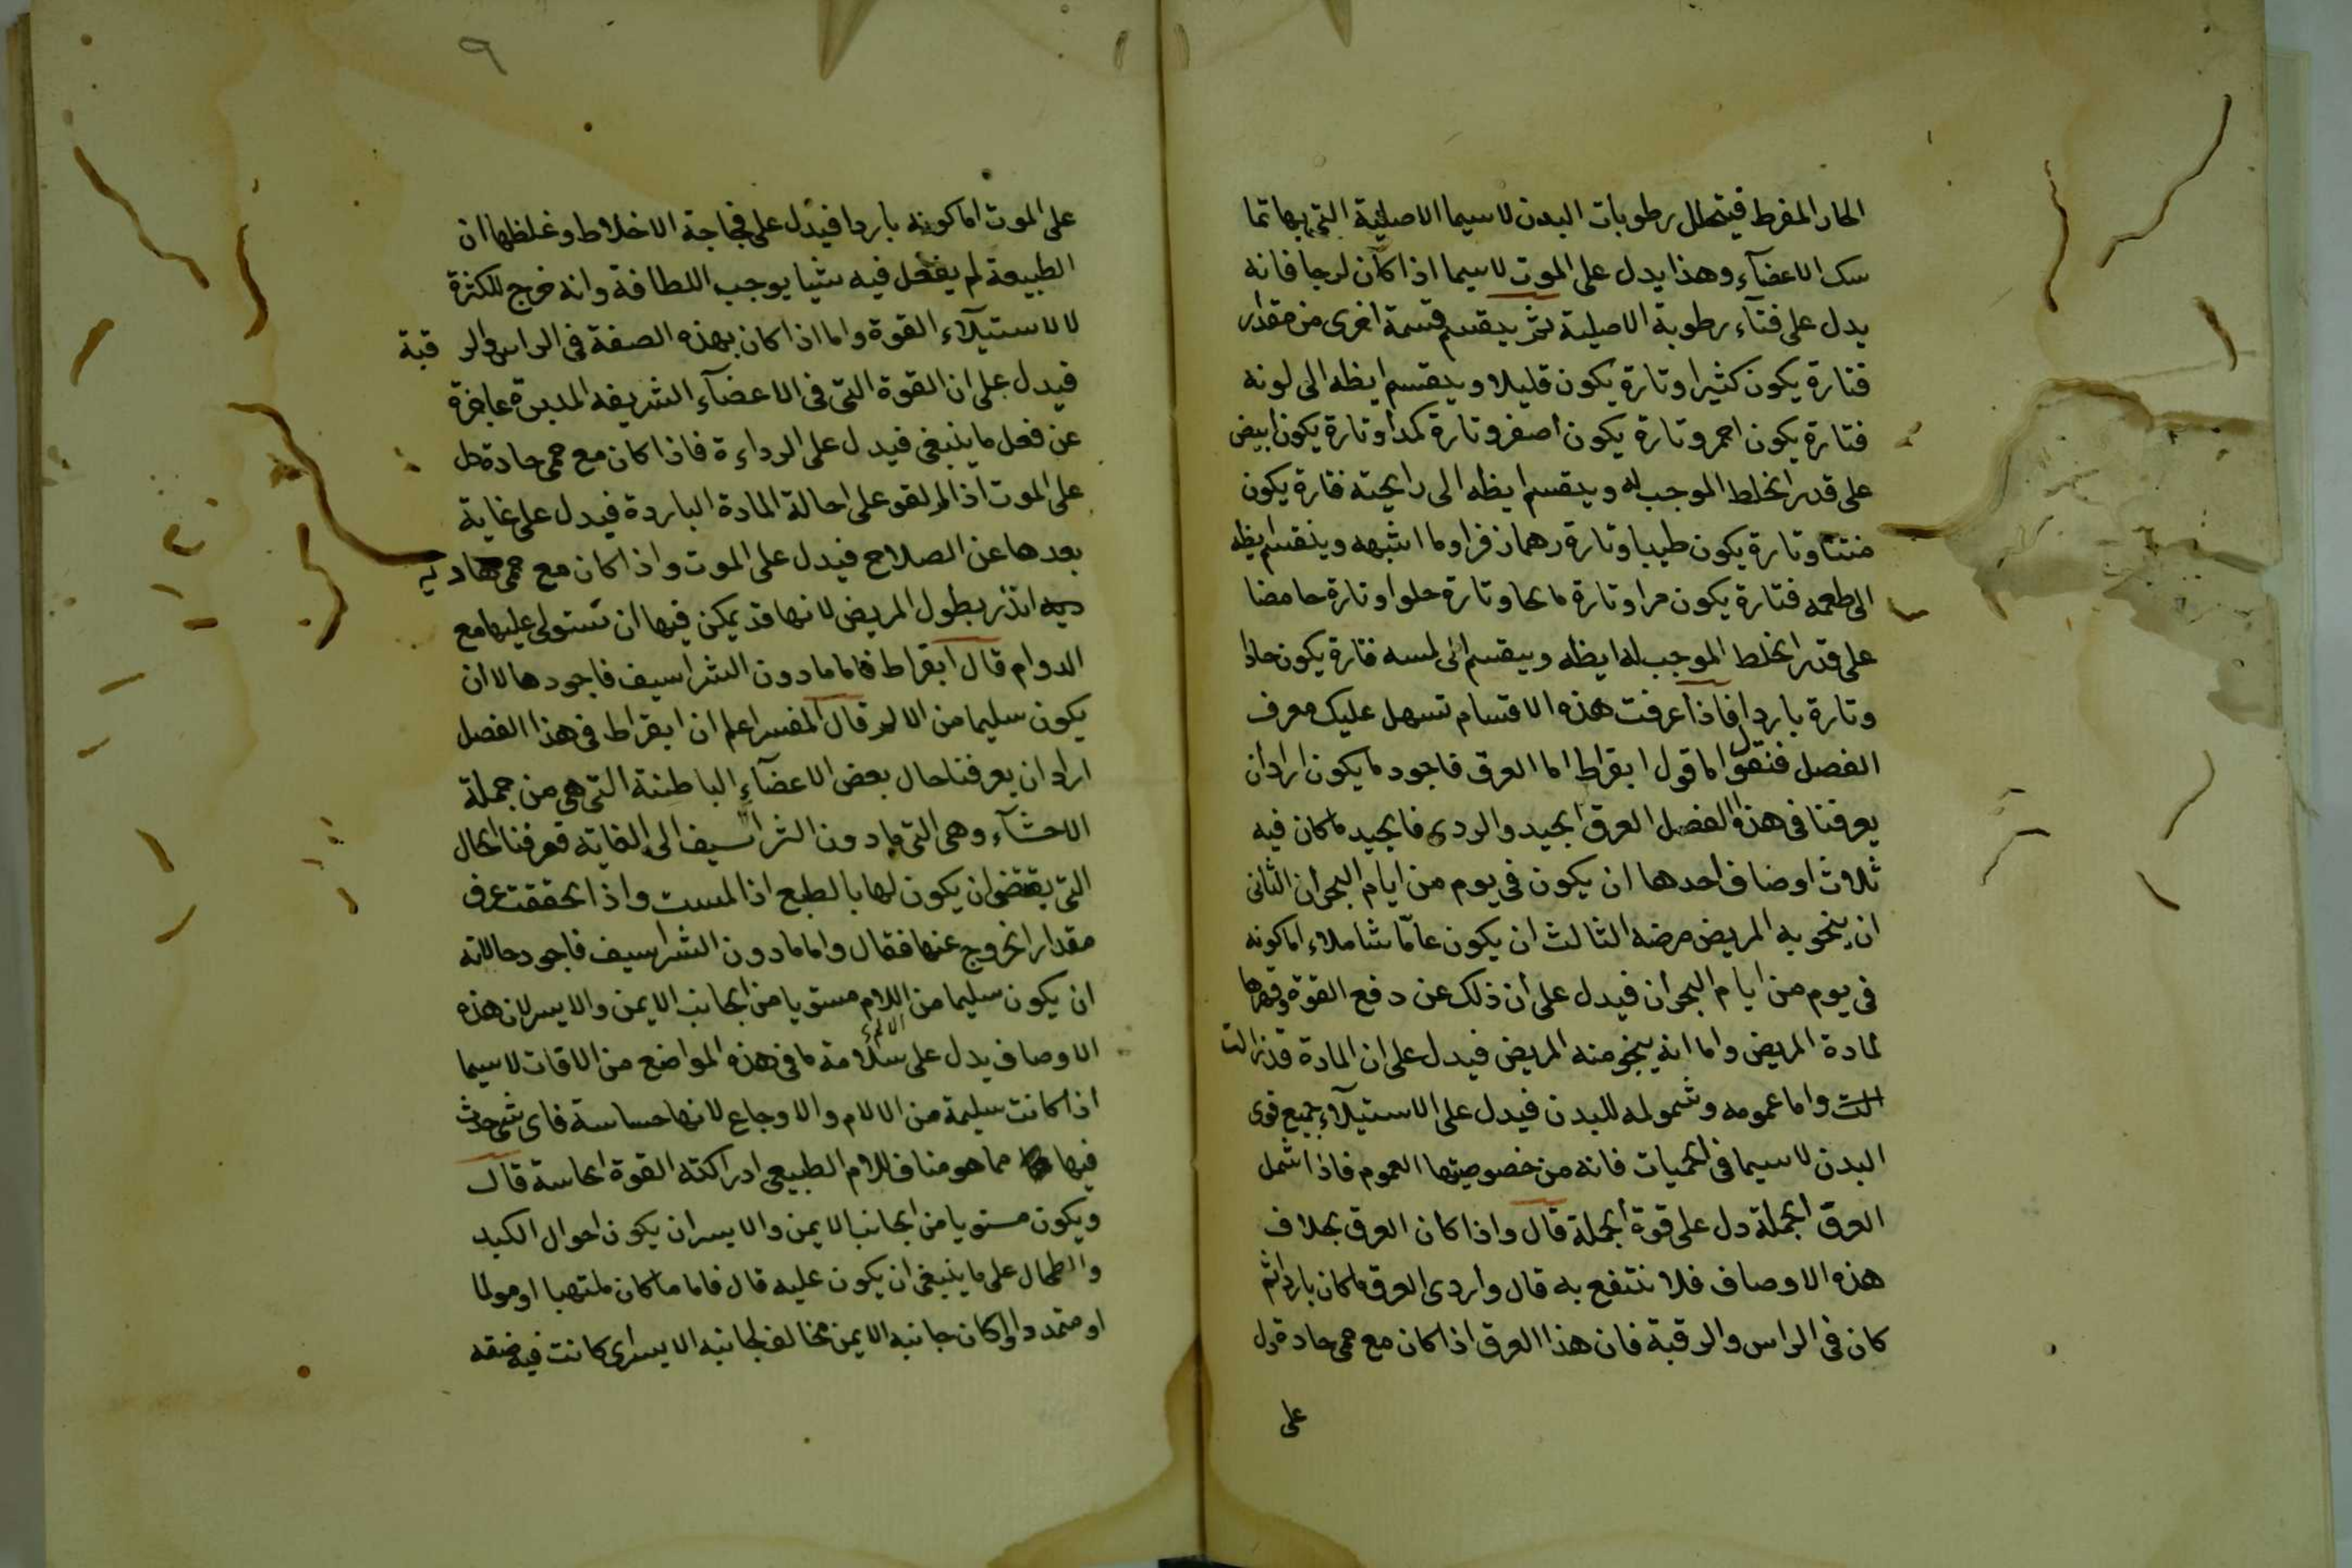 الحار المفرط فيتحلل رطوبات البدن لاسيما الاصلية التى بها تما
سك الاعضآء وهذا يدل على الموت لاسيما اذا كان لزجا فانه
يدل على فنآء رطوبة الاصلية ثم ينقسم قسمة اخرى من مقداره
فتارة يكون كثيرا وتارة يكون قليلا وينقسم ايظه الى لونه
فتارة يكون احمر وتارة يكون اصفر وتارة كمدا وتارة يكون ابيض
على قدر الخلط الموجب له وينقسم ايظه الى رايحته فتارة يكون
منتنا وتارة يكون طيبا وتارة زفرا وما اشبهه وينقسم ايظه
الى طعمه فتارة يكون مرا وتارة مالحا وتارة حلوا وتارة حامضا
على قدر الخلط الموجب له ايظه وينقسم الى لمسه فتارة يكون حارا
وتارة باردا فاذا عرفت هذه الاقسام تسهل عليك معرف
الفصل فنقول اما قول ابقراط اما العرق فاجود ما يكون اراد ان
يعرفنا فى هذه الفصل العرق الجيد والردى فالجيد ما كان فيه
ثلاث اوصاف احدها ان يكون فى يوم من ايام البحران الثانى
ان ينجو به المريض مرضه الثالث ان يكون عامّا شاملا اما كونه
فى يوم من ايام البحران فيدل على ان ذلك عن دفع القوة وقهرها
لمادة المريض واما انه ينجو منه المريض فيدل على ان المادة قد زالت
الت واما عمومه وشموله للبدن فيدل على الاستيلآء جميع قوى
البدن لاسيما فى الحميات فانه من خصوصيتها العموم فاذا اشمل
العرق الجملة دل على قوة الجملة قال واذا كان العرق بخلاف
هذه الاوصاف فلا ننتفع به قال واردى العرق ما كان باردا ثم
كان فى الراس والرقبة فان هذا العرق اذا كان مع حمى حادة دل
على
٩
على الموت اما كونه باردا فيدل على فجاجة الاخلاط وغلظها ان
الطبيعة لم يفعل فيه شيئا يوجب اللطافة وانه خرج للكثرة
لا لاستيلآء القوة واما اذا كان بهذه الصفة فى الراس والر قبة
فيدل على ان القوة التى فى الاعضآء الشريفه المدبرة عاجزة
عن فعل ما ينبغى فيدل على الرداءة فاذا كان مع حمى حادة دل
على الموت اذا لم تقو على احالة المادة الباردة فيدل على غاية
بعدها عن الصلاح فيدل على الموت واذا كان مع حمى
انذر بطول المريض لانها قد يمكن فيها ان تستولى عليها مع
الدوام قال ابقراط فاما مادون الشراسيف فاجودها لا ان
يكون سليما من الالم قال المفسر اعلم ان ابقراط فى هذا الفصل
اراد ان يعرفنا حال بعض الاعضآء الباطنة التى هى من جملة
الاحشآء وهى التى مادون الشراسيف الى العانة فعرفنا الحال
التى يقتضى ان يكون لها بالطبع اذا لمست واذا تحققت عرف
مقدار الخروج عنها فقال واما مادون الشراسيف فاجود حالاته
ان يكون سليما من اللام مستويا من الجانب الايمن والايسر لان هذه
الالم
الاوصاف يدل على سلامة ما فى هذه المواضع من الافات لاسيما
اذا كانت سليمة من الالام والاوجاع لانها حساسة فاى شى حدث
فيها مما هو مناف للام الطبيعى ادراكته القوة الحاسة قال
ويكون مستويا من الجانب الايمن والايسر ان يكون احوال الكبد
والطحال على ما ينبغى ان يكون عليه قال فاما ما كان ملتهبا او مولما
او متمددا او كان جانبه الايمن مخالف لجانبه الايسر اى كانت فيه